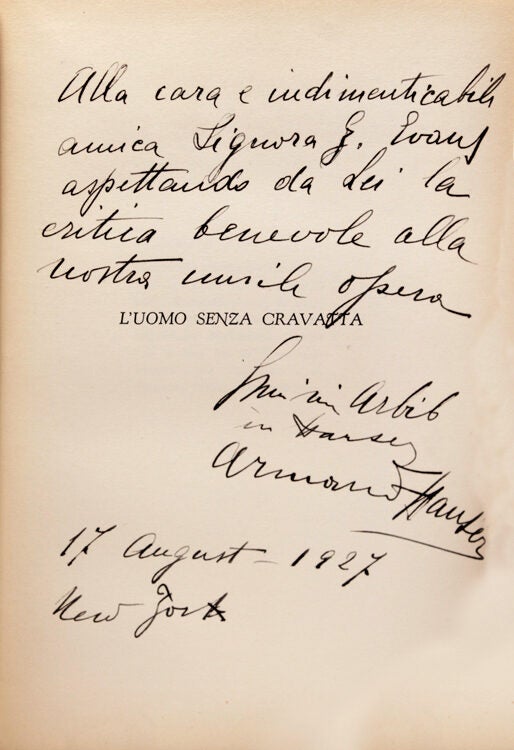 Alla cara e indimenticabile
amica Signora G. Evans
aspettando da Lei la
critica benevole alla
nostra umile opera
L'UOMO SENZA CRAVATTA
Arbib
in Hausen
Armando Hausen
17 August - 1927
New York